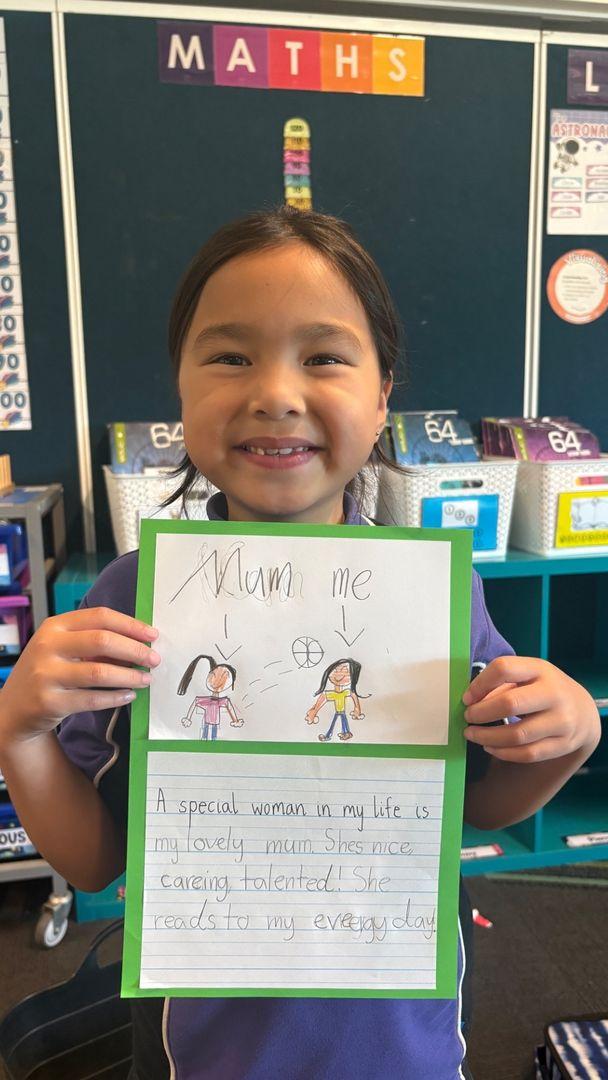 MATHS
L
ASTRONA
64
64
64
Mum me
A special woman in my life is
my lovely mum. Shes nice,
careing, talented! She
reads to my evergy day!